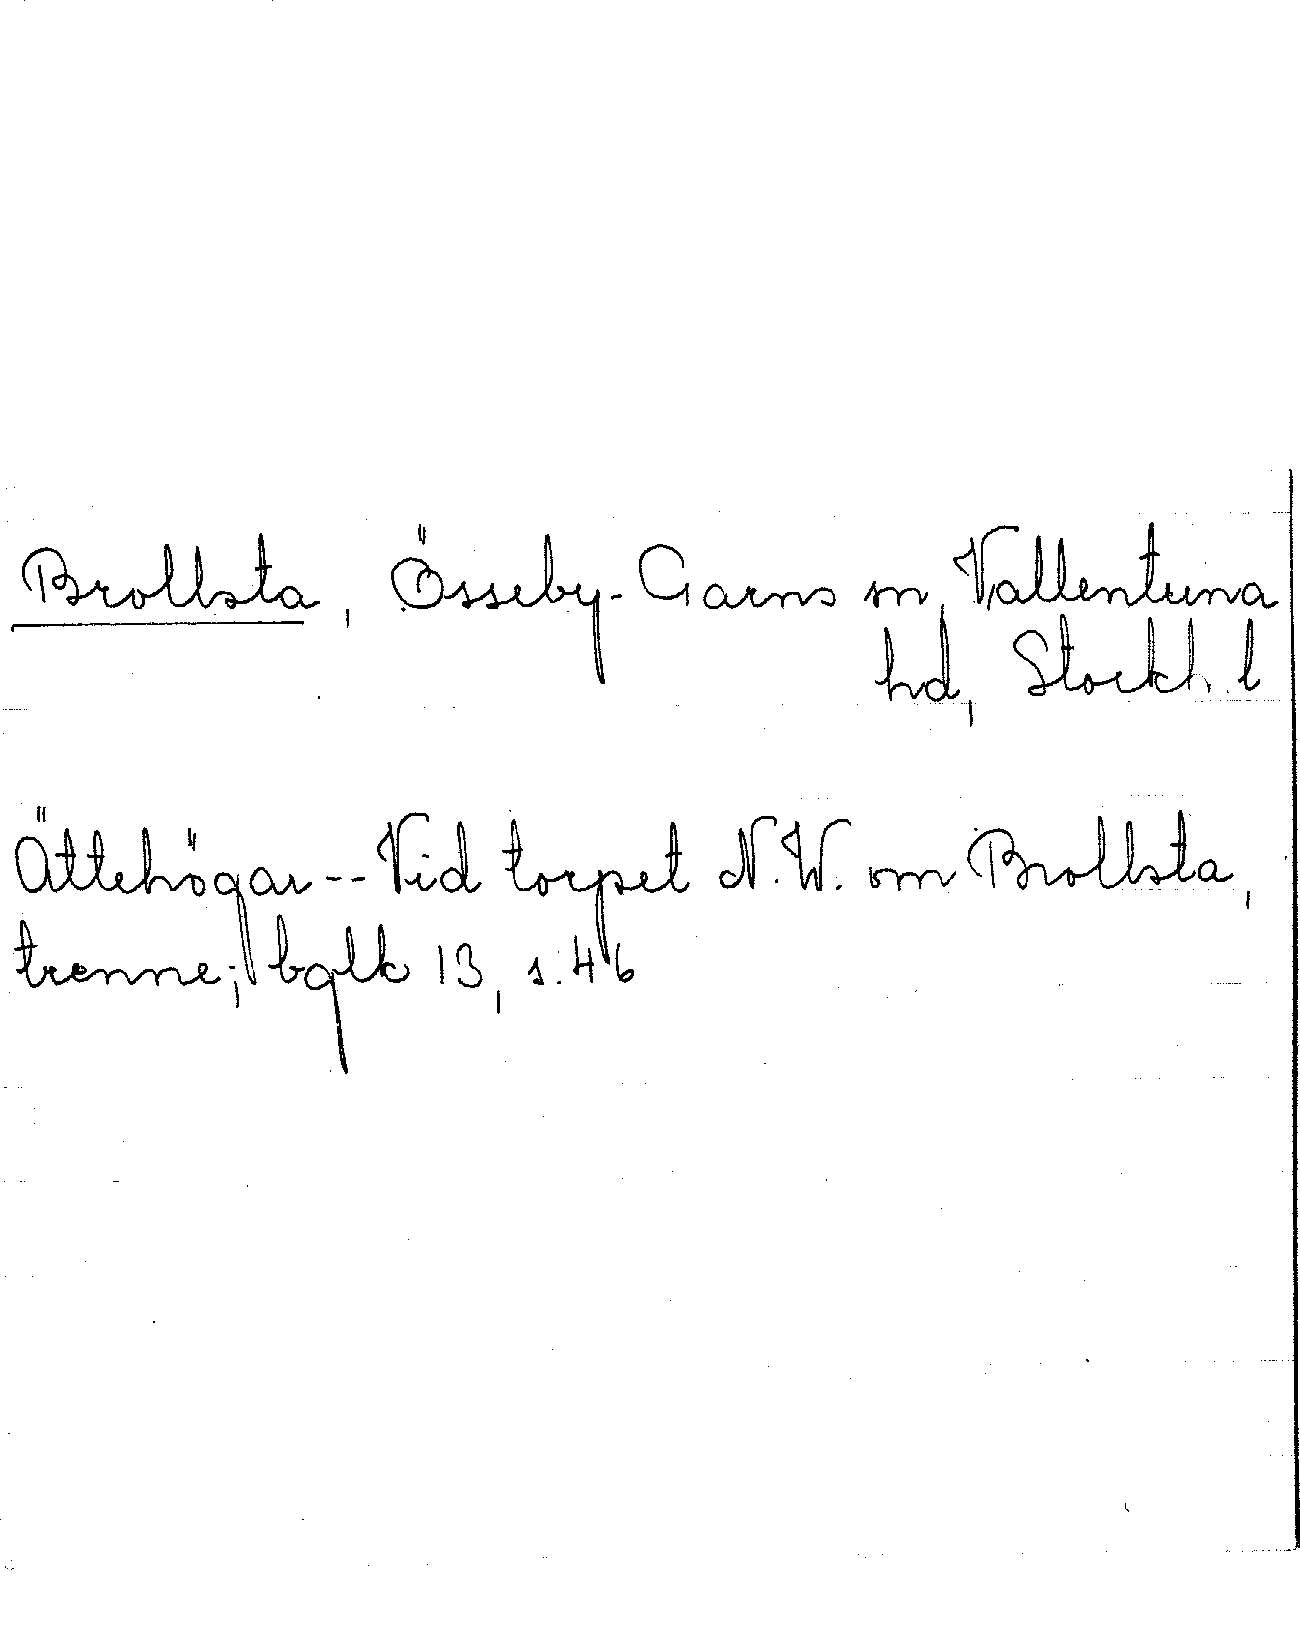 Brollsta, Össeby-Garns sn, Vallentuna
hd, Stockh. l
Ättehögar -- Vid torpet N.W. om Brollsta,
trenne; bglk 13, s. 46